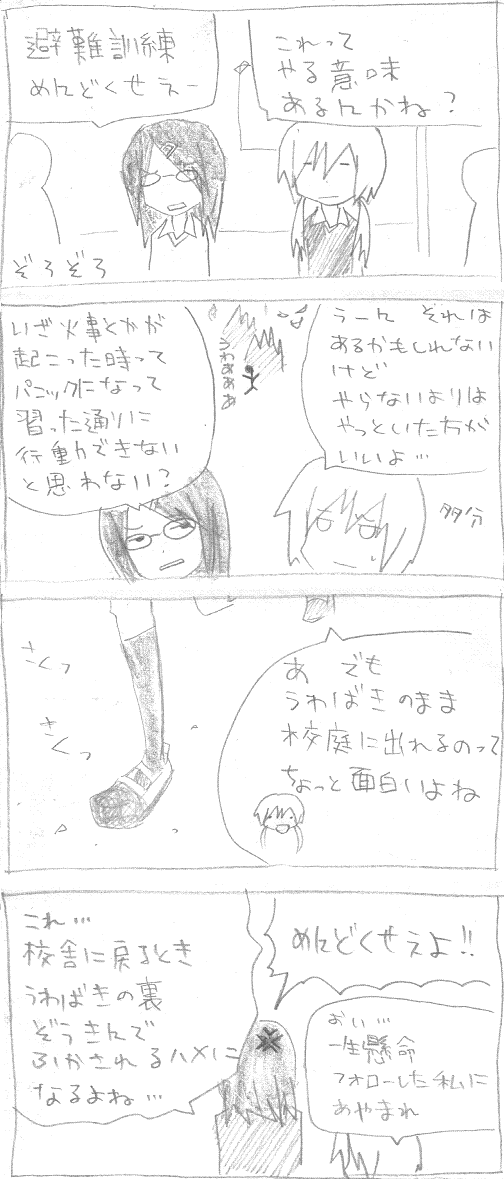 これって
やる意味
あるんかね?
避難訓練
めんどくせえー
ぞろぞろ
うーん それは
あるかもしれない
けど
やらないよりは
やっといた方が
いいよ…
多分
うわぁぁぁ
いざ火事とかが
起こった時って
パニックになって
習った通りに
行動できない
と思わない?
あ でも
うわばきのまま
校庭に出れるのって
ちょっと面白いよね
さくっ
さくっ
めんどくせえよ!!
これ…
校舎に戻るとき
うわばきの裏
ぞうきんで
ふかされるハメに
なるよね…
おい…
一生懸命
フォローした私に
あやまれ